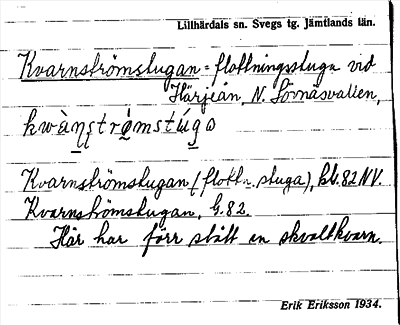 Lillhärdals sn. Svegs tg. Jämtlands län.
Kvarnströmstugan = flottningsstuga vid
Härjeån, N. Lövnäsvallen,
kwàṇștrø̣mstúgo
Kvarnströmstugan (flottn. stuga), kbl. 82 NV.
Kvarnströmstugan, G. 82.
Här har förr stått en skvaltkvarn.
Erik Eriksson 1934.